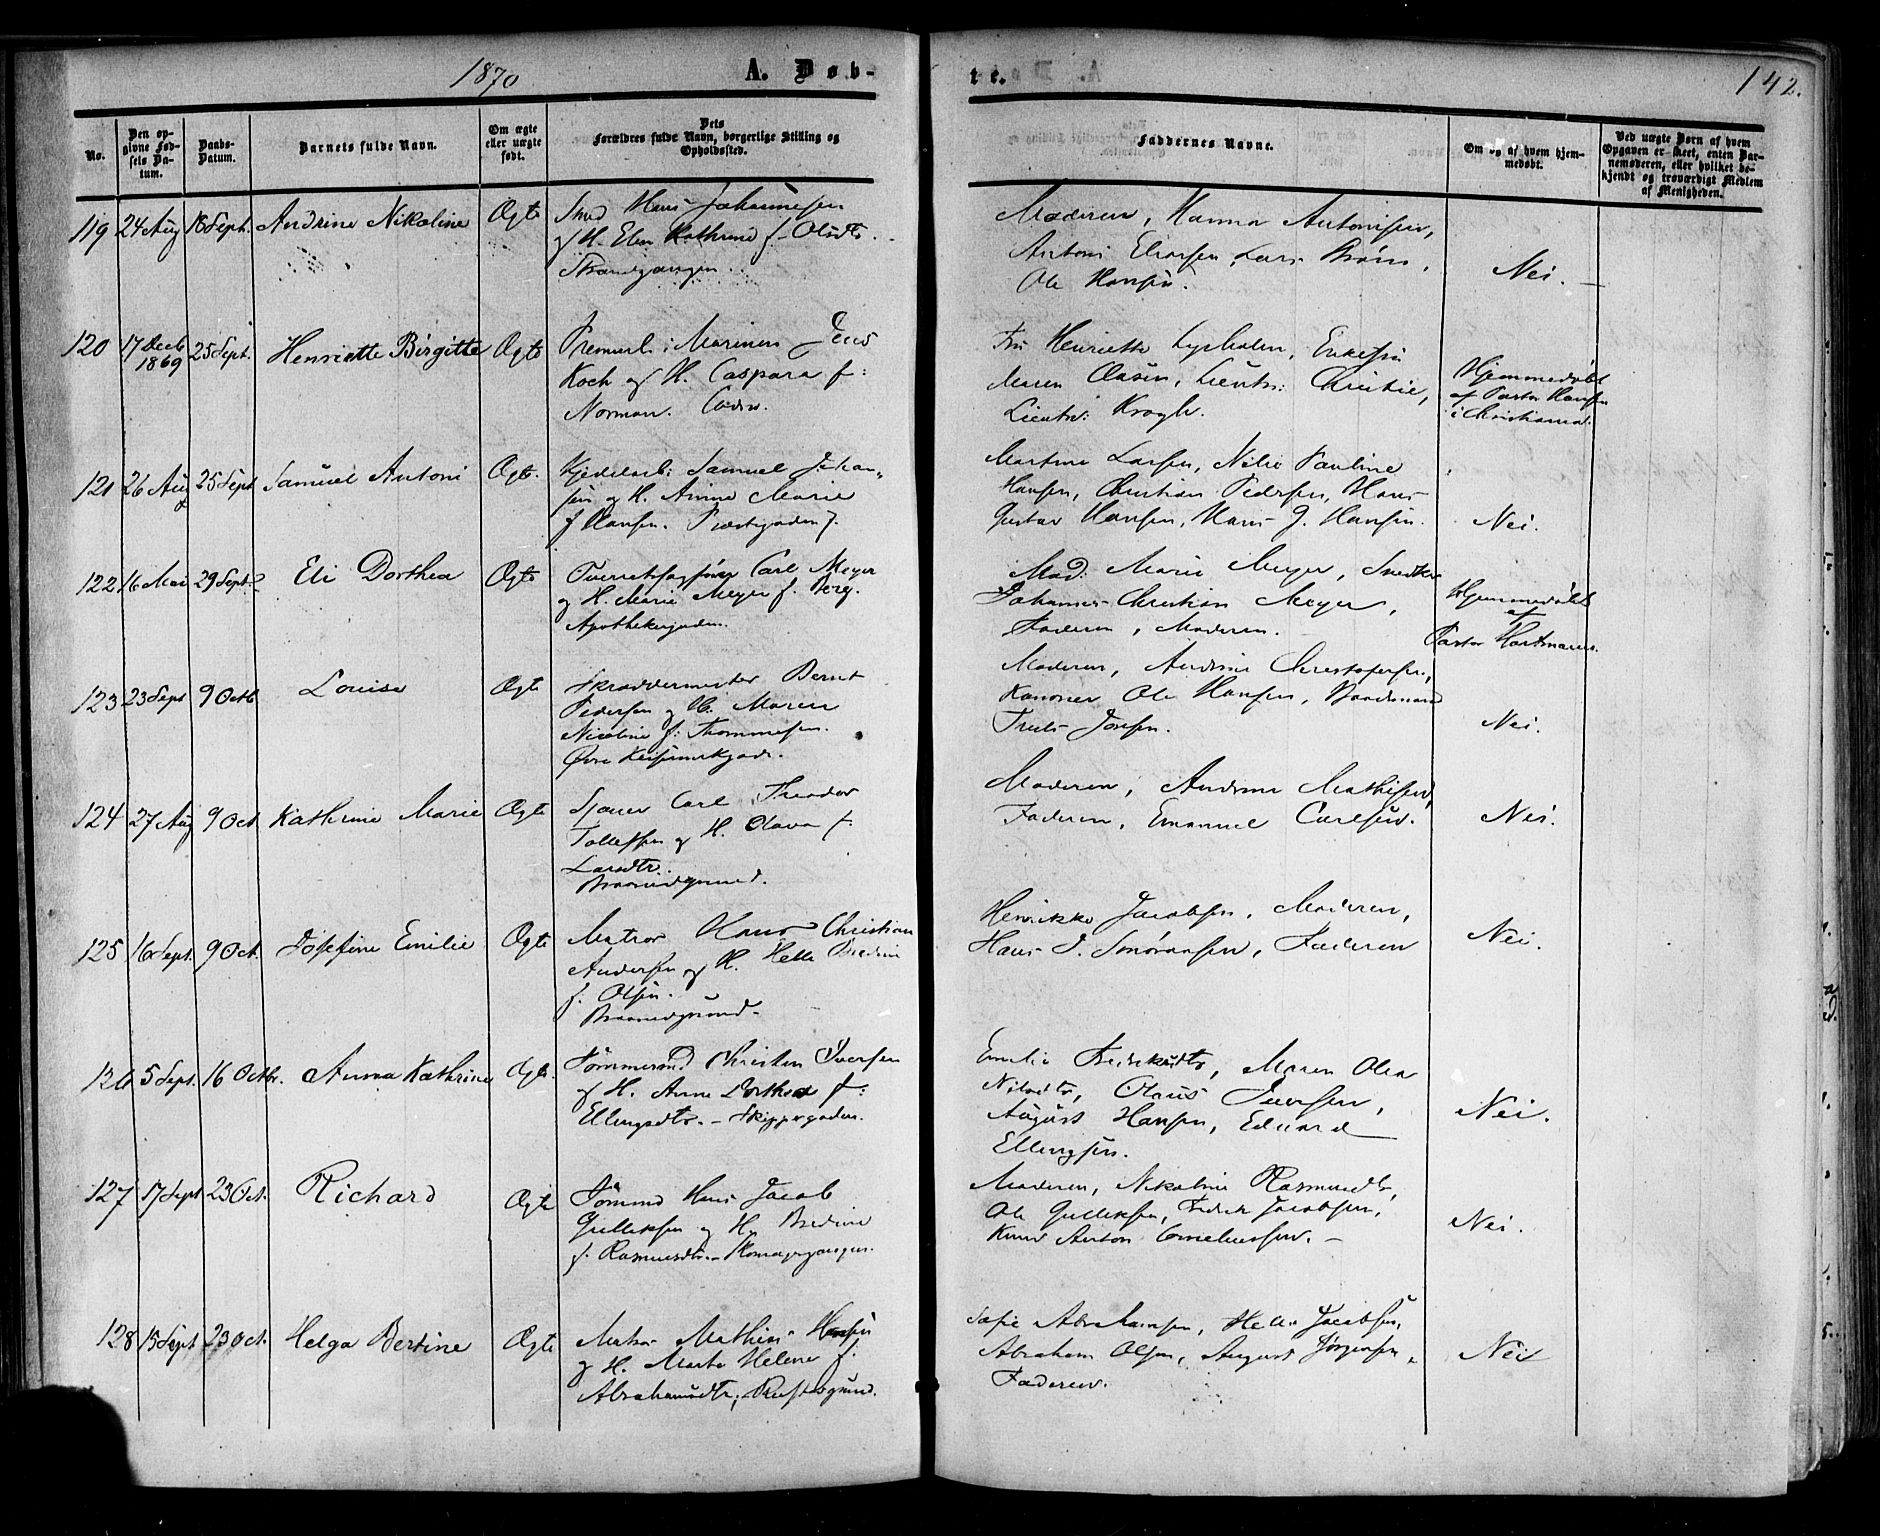 1870
A. Døb-
te.
142.
No.
Den op-
givne Fød-
sels Da-
tum.
Daabs-
Datum.
Barnets fulde Navn.
Om ægte
eller uægte
født.
Dets
Forældres fulde Navn, borgerlige Stilling og
Opholdssted.
Faddernes Navne.
Om og af hvem hjem-
medøbt.
Ved uægte Børn af hvem
Opgaven er skeet, enten Bar-
nemoderen, eller hvilket be-
kjendt og troværdigt Medlem
af Menigheden.
119 24 Aug 18 Sept. Andrine Nikoline Ægte
Smed Hans Johannesen
og H. Elen Kathrine f. Olsdtr.
Strandgangen.
Moderen, Hanna Antonisen,
Antoni Eliasen, Lars
Ole Hansen.
Nei.
120 17 Decb 1869 25 Sept. Henriette Birgitte Ægte
Premierl. i Marinen Jens
Koch og H. Caspara f:
Norman.
Fru Henriette Lysholm, Enkefru
Maren Olsen, Lieutn: Christie,
Lieutn: Krogh.
Hjemmedøbt
af Pastor Hansen
i Christiania.
121 26 Aug 25 Sept Samuel Antoni Ægte.
Kjedelarb: Samuel Johan-
sen og H. Anne Marie
f Hansen. Præstegaden 7.
Martine Larsen, Nilie Pauline
Hansen, Christian Pedersen, Hans
Gustav Hansen, Hans J. Hansen.
Nei.
122 16 Mai 29 Sept. Eli Dorthea Ægte
Overretssagfører Carl Meyer
og H. Marie Meyer f. Berg.
Apothekergaden.
Mad: Marie Meyer, Snedker
Johannes Christian Meyer,
Faderen, Moderen.
Hjemmedøbt
af
Pastor Hartmann.
123 23 Sept 9 Octb Louise Ægte
Skræddermester Bernt
Pedersen og H. Maren
Nicoline f: Thommesen.
Øvre Keisemarkgade.
Moderen, Andrine Christophersen,
Kanoner Ole Hansen, Baadsmand
Truls Jonsen.
Nei.
124 27 Aug 9 Oct Kathrine Marie Ægte
Sjouer Carl Theodor
Tollefsen og H. Olava f.
Larsdtr.
Braarudgrund.
Moderen, Andrine Mathisen,
Faderen, Emanuel Carlsen.
Nei.
125 16 Sept. 9 Oct. Josefine Emilie Ægte
Matros Hans Christian
Andersen og H. Helle Bredine
f. Olsen.
Braarudgrund.
Henrikke Jacobsen, Moderen,
Hans J. Smøransen, Faderen
Nei.
126 5 Sept. 16 Octbr. Anna Kathrine Ægte.
Tømmermd Christen Iversen
og H. Anne Dorthea f:
Ellingsdtr. - Skippergaden.
Emilie Fredriksdtr, Maren Olea
Nilsdtr, Olaus Iversen,
August Hansen, Edvard
Ellingsen.
Nei.
127 17 Sept 23 Oct. Richard Ægte
Tømmd Hans Jacob
Gulliksen og H. Bredine
f. Rasmusdtr. - Skomagergangen.
Moderen, Nikoline Rasmusdtr,
Ole Gulliksen, Fredrik Jacobsen,
Knud Anton Corneliussen. -
Nei.
128 15 Sept 23 Oct. Helga Bertine Ægte
Matros Mathias Hansen
og H. Marte Helene f.
Abrahamsdtr,
Sofie Abrahamsen, Helle Jacobsen,
Abraham Olsen, August Jørgensen,
Faderen.
Nei